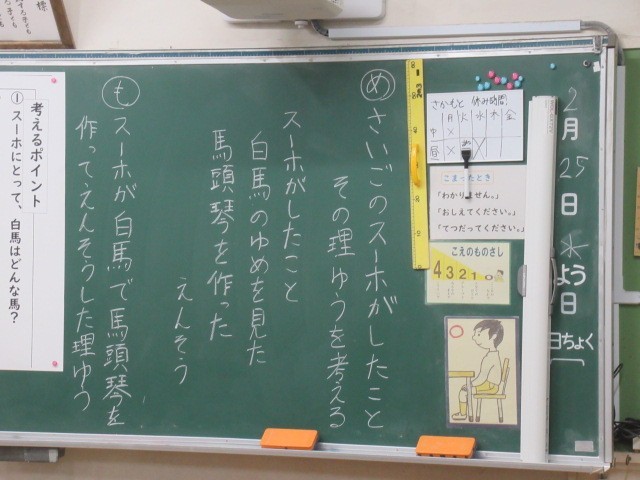 2月25日 水よう日
日ちょく
さかもと 休み時間
月 火 水 木 金
中 ×
昼 ×
こまったとき
「わかりません。」
「おしえてください。」
「てつだってください。」
こえのものさし
4 3 2 1 0
め さいごのスーホがしたこと
その理ゆうを考える
スーホがしたこと
白馬のゆめを見た
馬頭琴を作った
えんそう
も スーホが白馬で馬頭琴を
作ってえんそうした理ゆう
考えるポイント
① スーホにとって、白馬はどんな馬？